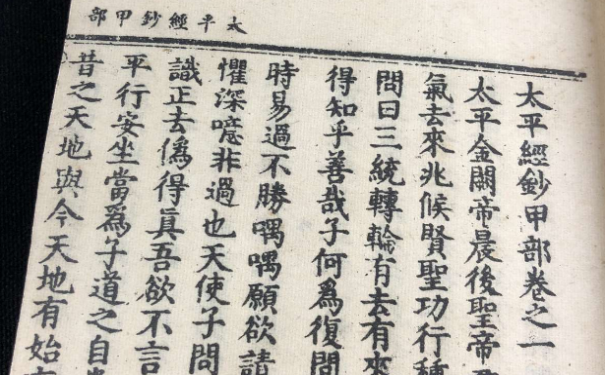 太平經鈔甲部
太平經鈔甲部卷之一
太平金闕帝晨後聖帝
氣去來兆候賢聖功行種
問曰三統轉輪有去有來
得知乎善哉子何爲復問
時易過不勝喁喁願欲請
懼深噫非過也天使子問
識正去僞得真吾欲不言
平行安坐當爲子道之自
昔之天地與今天地有始有